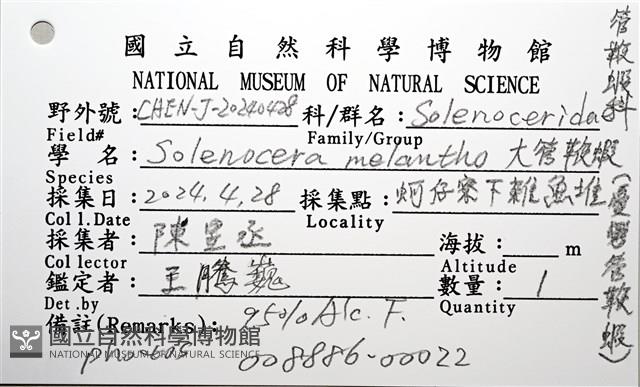 國立自然科學博物館
NATIONAL MUSEUM OF NATURAL SCIENCE
野外號：CHEN-J-20240428 科/群名：Solenoceridae
Field# Family/Group
管鞭蝦科
學名：Solenocera melantho 大管鞭蝦
Species
採集日：2024.4.28 採集點：蚵仔寮下雜魚堆
Coll.Date Locality
採集者：陳昱丞 海拔：m
Collector Altitude
鑑定者：王騰巍 數量：1
Det.by Quantity
備註(Remarks)： 95% Alc. F.
008886-00022
國立自然科學博物館
NATIONAL MUSEUM OF NATURAL SCIENCE